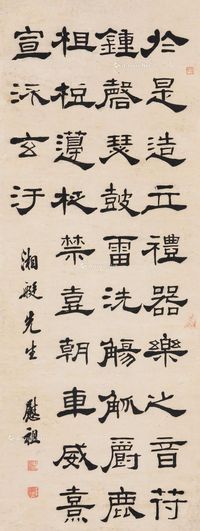 於是造立禮器樂之音苻
鍾磬瑟鼓雷洗觴觚爵鹿
柤梪籩柉禁壺朝車威熹
宣抒玄汙
湘艇先生 慰祖